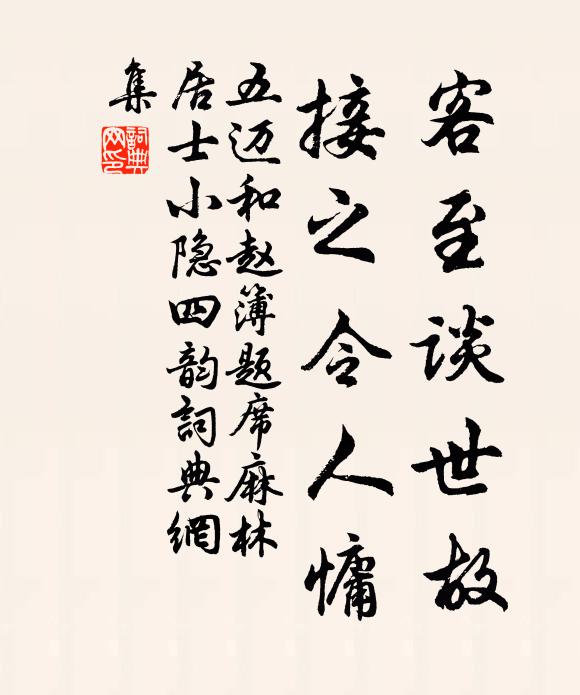 客至談世故
接之令人慵
五迈和赵簿题席麻林
居士小隐四韵詞典網
集
詞典网印